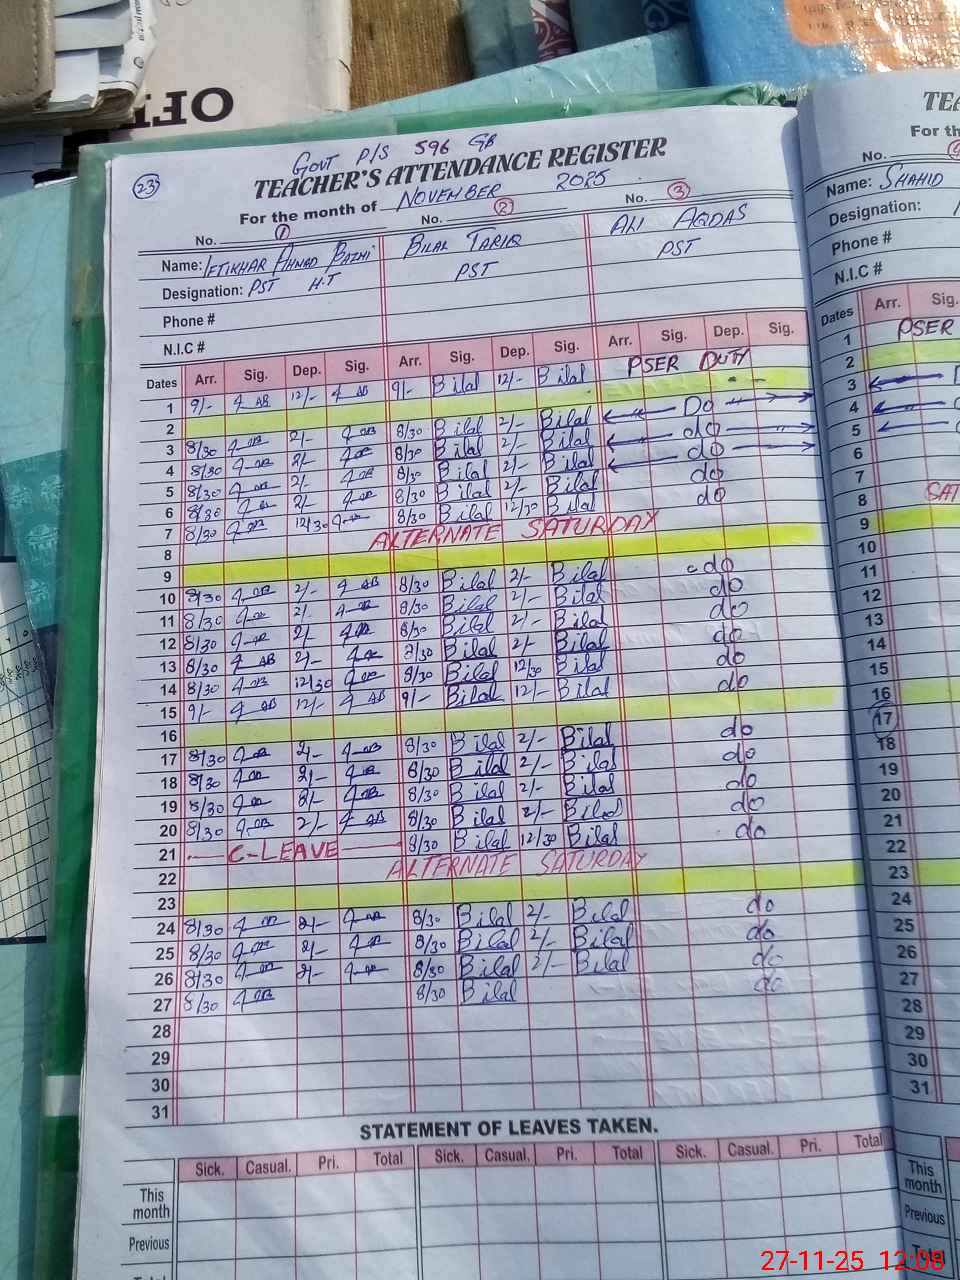 OFF
GOVT P/S 596 GB
23
TEACHER'S ATTENDANCE REGISTER
For the month of NOVEMBER 2025
No. 1 No. 2 No. 3
Name: IFTIKHAR AHMAD BAZMI BILAL TARIQ ALI AQDAS
Designation: PST H.T PST PST
Phone #
N.I.C #
Dates Arr. Sig. Dep. Sig. Arr. Sig. Dep. Sig. Arr. Sig. Dep. Sig.
1 9/- 12/- 9/- Bilal 12/- Bilal PSER DUTY
2
3 8/30 2/- 8/30 Bilal 2/- Bilal Do
4 8/30 2/- 8/30 Bilal 2/- Bilal do
5 8/30 2/- 8/30 Bilal 2/- Bilal do
6 8/30 2/- 8/30 Bilal 2/- Bilal do
7 8/30 12/30 8/30 Bilal 12/30 Bilal do
8 ALTERNATE SATURDAY
9
10 8/30 2/- 8/30 Bilal 2/- Bilal do
11 8/30 2/- 8/30 Bilal 2/- Bilal do
12 8/30 2/- 8/30 Bilal 2/- Bilal do
13 8/30 2/- 8/30 Bilal 2/- Bilal do
14 8/30 12/30 8/30 Bilal 12/30 Bilal do
15 9/- 12/- 9/- Bilal 12/- Bilal do
16
17 8/30 2/- 8/30 Bilal 2/- Bilal do
18 8/30 2/- 8/30 Bilal 2/- Bilal do
19 8/30 2/- 8/30 Bilal 2/- Bilal do
20 8/30 2/- 8/30 Bilal 2/- Bilal do
21 C-LEAVE 8/30 Bilal 12/30 Bilal do
22 ALTERNATE SATURDAY
23
24 8/30 2/- 8/30 Bilal 2/- Bilal do
25 8/30 2/- 8/30 Bilal 2/- Bilal do
26 8/30 2/- 8/30 Bilal 2/- Bilal do
27 8/30 8/30 Bilal do
28
29
30
31
STATEMENT OF LEAVES TAKEN.
Sick. Casual. Pri. Total Sick. Casual. Pri. Total Sick. Casual. Pri. Total
This month
Previous
Total
TEA
For th
No.
Name: SHAHID
Designation:
Phone #
N.I.C #
Dates Arr. Sig.
1 PSER
2
3
4
5
6
7
8
9
10
11
12
13
14
15
16
17
18
19
20
21
22
23
24
25
26
27
28
29
30
31
This month
Previous
27-11-25 12:08